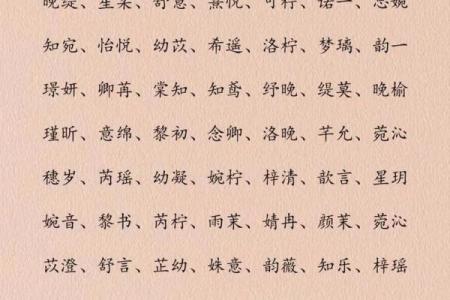 知宛、怡悦、幼苡、希遥、洛柠、梦璃、韵一
璟妍、卿苒、棠知、知鸢、纾晚、缇莫、晚榆
瑾昕、意绵、黎初、念卿、洛晚、芊允、菀沁
穗岁、芮瑶、幼凝、婉柠、梓清、歆言、星玥
婉音、黎书、芮柠、雨茉、婧冉、颜茉、菀沁
苡澄、舒言、芷幼、姝意、韵薇、知乐、梓瑶